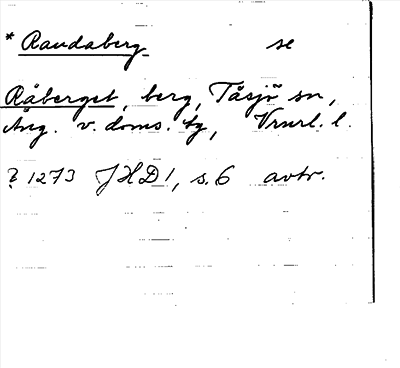 * Raudaberg se
Råberget, berg, Tåsjö sn,
Ång. v. doms. tg, Vnrl. l.
? 1273 JHD 1, s. 6 avtr.